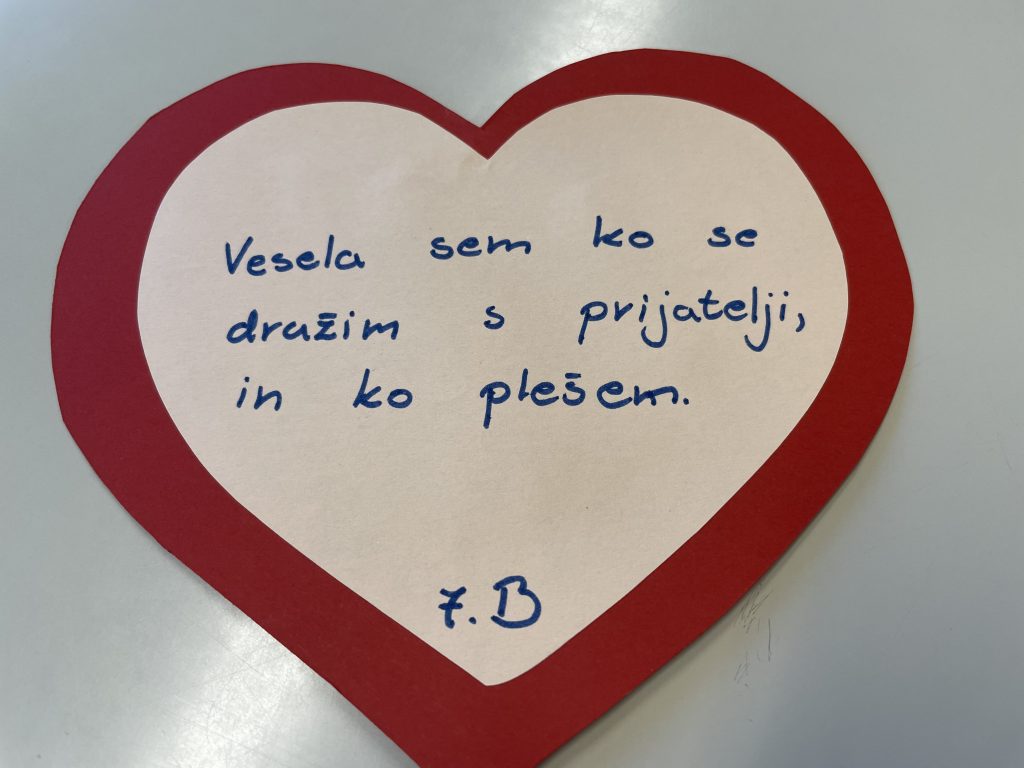 Vesela sem ko se
družim s prijatelji,
in ko plešem.
7.B